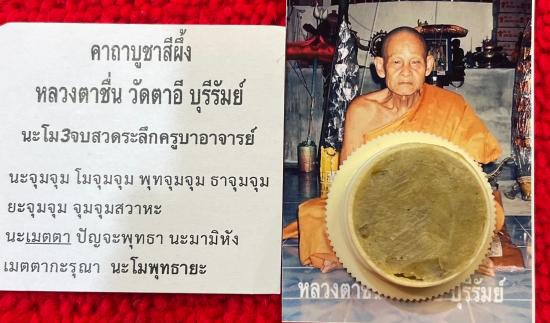 คาถาบูชาสีผึ้ง
หลวงตาชื่น วัดตาอี บุรีรัมย์
นะโม3จบสวดระลึกครูบาอาจารย์
นะจุมจุม โมจุมจุม พุทจุมจุม ธาจุมจุม
ยะจุมจุม จุมจุมสวาหะ
นะเมตตา ปัญจะพุทธา นะมามิหัง
เมตตากะรุณา นะโมพุทธายะ
หลวงตาชื่น บุรีรัมย์